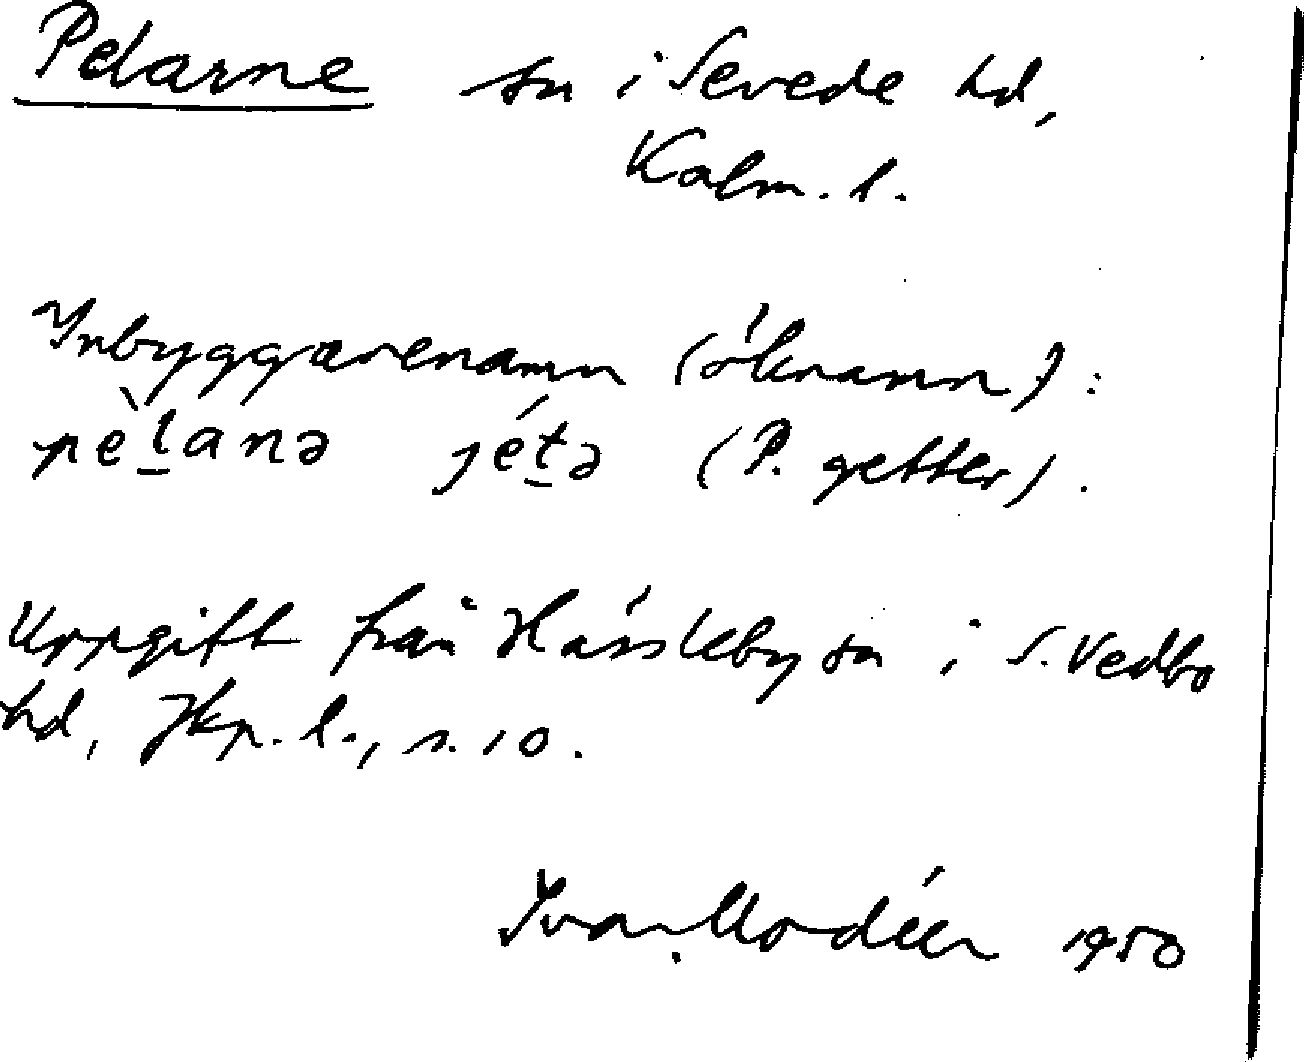 Pelarne sn i Sevede hd,
Kalm. l.
Inbyggarenamn (öknamn):
pèḻanə jéṯə (P. getter).
Uppgift från Hässleby sn i S. Vedbo
hd, Jkp. l., s. 10.
Ivar Modéer 1950